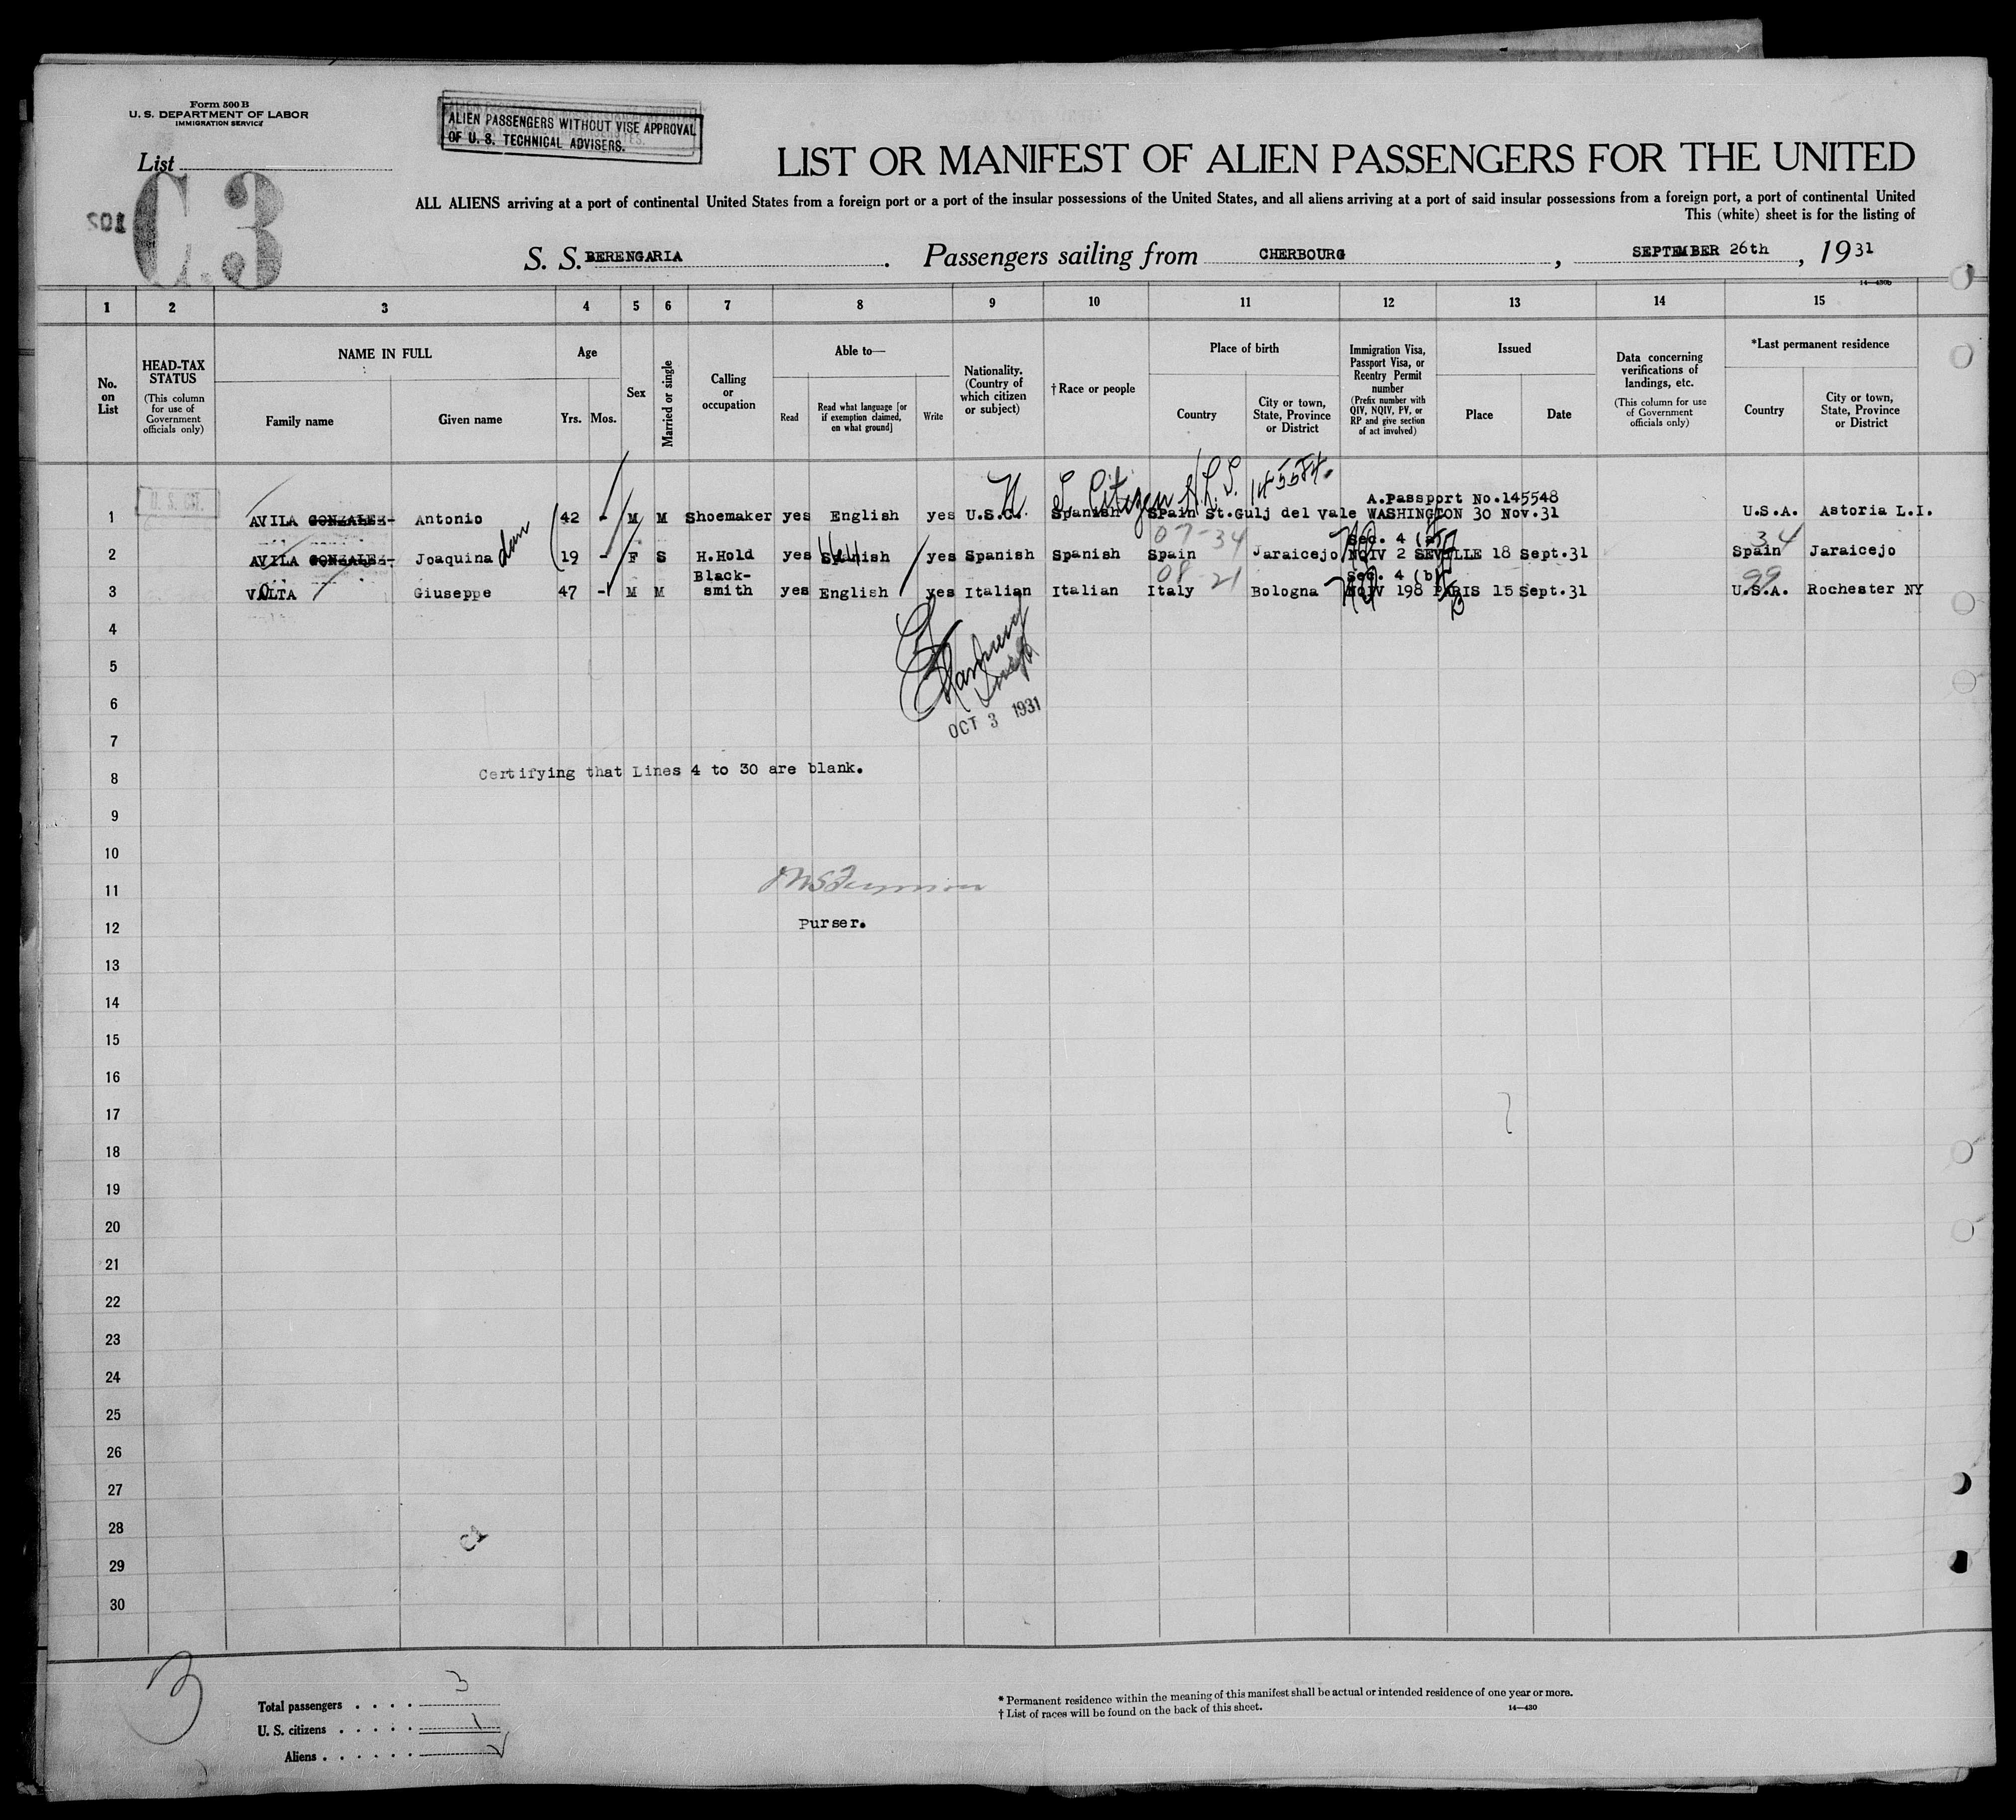 Form 500 B
U. S. DEPARTMENT OF LABOR
IMMIGRATION SERVICE
ALIEN PASSENGERS WITHOUT VISE APPROVAL
OF U. S. TECHNICAL ADVISERS.
List
C.3
LIST OR MANIFEST OF ALIEN PASSENGERS FOR THE UNITED
ALL ALIENS arriving at a port of continental United States from a foreign port or a port of the insular possessions of the United States, and all aliens arriving at a port of said insular possessions from a foreign port, a port of continental United
This (white) sheet is for the listing of
S. S. BERENGARIA. Passengers sailing from CHERBOURG, SEPTEMBER 26th, 1931
14—430b
1 2 3 4 5 6 7 8 9 10 11 12 13 14 15
No. on List
HEAD-TAX STATUS (This column for use of Government officials only)
NAME IN FULL
Family name Given name
Age
Yrs. Mos.
Sex
Married or single
Calling or occupation
Able to—
Read Read what language [or if exemption claimed, on what ground] Write
Nationality. (Country of which citizen or subject)
†Race or people
Place of birth
Country City or town, State, Province or District
Immigration Visa, Passport Visa, or Reentry Permit number (Prefix number with QIV, NQIV, PV, or RP and give section of act involved)
Issued
Place Date
Data concerning verifications of landings, etc. (This column for use of Government officials only)
*Last permanent residence
Country City or town, State, Province or District
U. S. Citizen 145584.
U. S. CIT.
A.Passport No.145548
1 AVILA GONZALEZ- Antonio 42 - M M Shoemaker yes English yes U.S.C. Spanish Spain St.Gulj del Vale WASHINGTON 30 Nov.31 U.S.A. Astoria L.I.
07-34 Sec. 4 (a) 34
2 AVILA GONZALEZ- Joaquina 19 - F S H.Hold yes Spanish yes Spanish Spanish Spain Jaraicejo NQIV 2 SEVILLE 18 Sept.31 Spain Jaraicejo
Black- 08-21 Sec. 4 (b) 99
3 VOLTA Giuseppe 47 - M M smith yes English yes Italian Italian Italy Bologna NQIV 198 PARIS 15 Sept.31 U.S.A. Rochester NY
4
5
6
OCT 3 1931
7
8 Certifying that Lines 4 to 30 are blank.
9
10
11
12 Purser.
13
14
15
16
17
18
19
20
21
22
23
24
25
26
27
28
29
30
3
Total passengers . . . . 3
U. S. citizens . . . . . 1
Aliens . . . . . .
* Permanent residence within the meaning of this manifest shall be actual or intended residence of one year or more.
† List of races will be found on the back of this sheet.
14—430